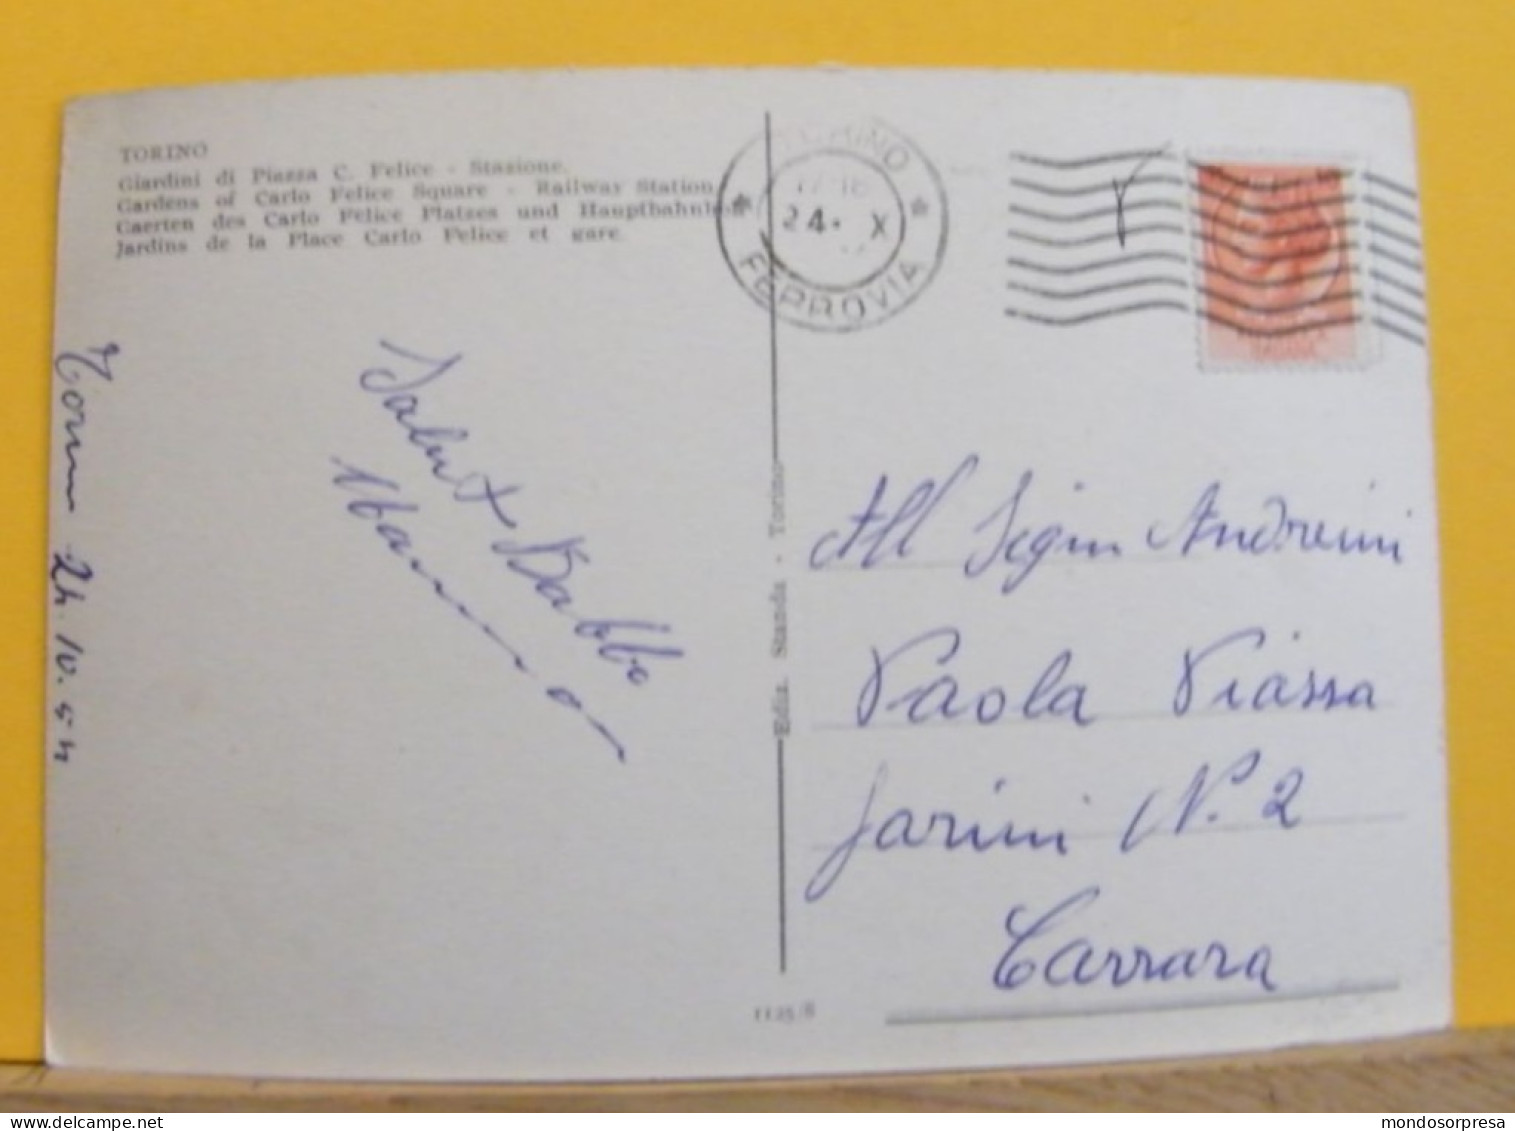 TORINO
Giardini di Piazza C. Felice - Stazione.
Gardens of Carlo Felice Square - Railway Station
Gaerten des Carlo Felice Platzes und Hauptbahnhof
Jardins de la Place Carlo Felice et gare.
TORINO
17-18
24. X
FERROVIA
Torino 24.10.54
Saluti Babbo
Mamma
Ediz. Standa - Torino
All Sigra Andreini
Paola Piazza
Farini N. 2
Carrara
1125/8
mondosorpresa